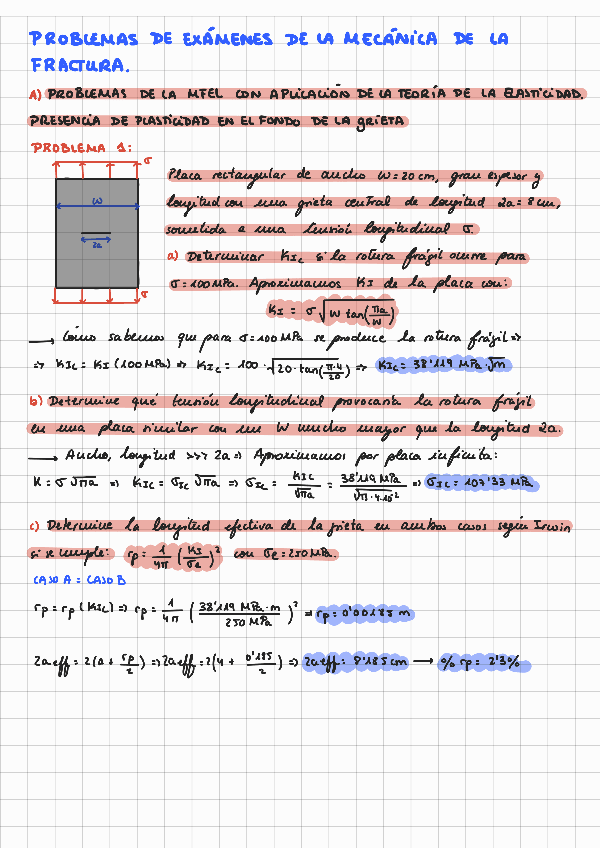 PROBLEMAS DE EXÁMENES DE LA MECÁNICA DE LA
FRACTURA.
A) PROBLEMAS DE LA MFEL CON APLICACIÓN DE LA TEORÍA DE LA ELASTICIDAD.
PRESENCIA DE PLASTICIDAD EN EL FONDO DE LA GRIETA
PROBLEMA 1:
σ
W
2a
σ
Placa rectangular de ancho W = 20 cm, gran espesor y
longitud con una grieta central de longitud 2a = 8 cm,
sometida a una tensión longitudinal σ
a) Determinar KIC si la rotura frágil ocurre para
σ = 100 MPa. Aproximamos KI de la placa con:
KI = σ √(W tan(πa/W))
→ Cómo sabemos que para σ = 100 MPa se produce la rotura frágil ⇒
⇒ KIC = KI (100 MPa) ⇒ KIC = 100 · √(20 · tan(π·4/20)) ⇒ KIC = 38'119 MPa·√m
b) Determine qué tensión longitudinal provocaría la rotura frágil
en una placa similar con un W mucho mayor que la longitud 2a.
→ Ancho, longitud >>> 2a ⇒ Aproximamos por placa infinita:
K = σ √πa ⇒ KIC = σIC √πa ⇒ σIC = KIC/√πa = 38'119 MPa/√(π·4·10⁻²) ⇒ σIC = 107'33 MPa
c) Determine la longitud efectiva de la grieta en ambos casos según Irwin
si se cumple: rp = 1/4π (KI/σe)² con σe = 250 MPa.
CASO A = CASO B
rp = rp (KIC) ⇒ rp = 1/4π (38'119 MPa·m/250 MPa)² ⇒ rp = 0'00185 m
2aeff = 2(a + rp/2) ⇒ 2aeff = 2(4 + 0'185/2) ⇒ 2aeff = 8'185 cm → % rp = 2'3%